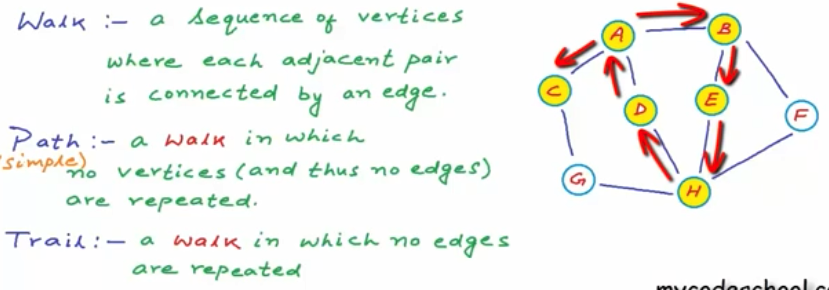 Walk :- a sequence of vertices
where each adjacent pair
is connected by an edge.
Path :- a walk in which
(simple) no vertices (and thus no edges)
are repeated.
Trail :- a walk in which no edges
are repeated
A
B
C
D
E
F
G
H